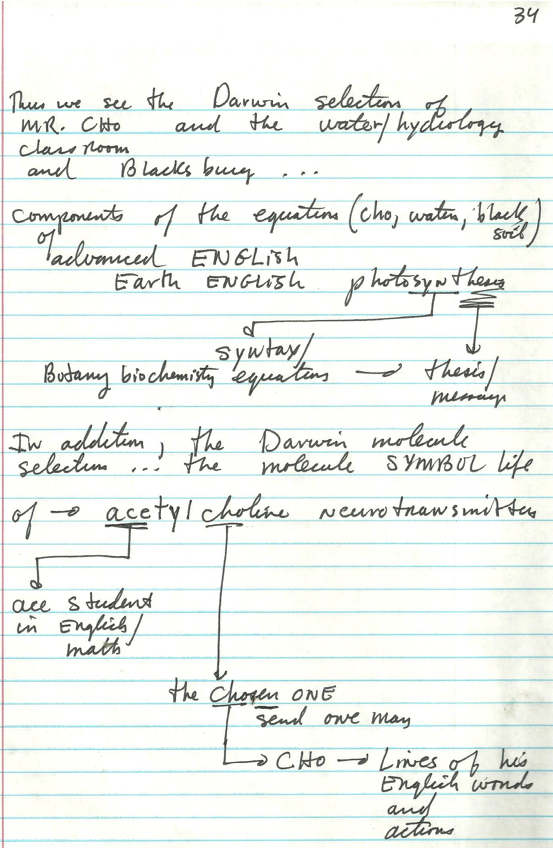 34
Thus we see the Darwin selection of
MR. CHO and the water/hydrology
classroom
and Blacksburg ...
components of the equation (cho, water, black
soil)
of advanced ENGLISH
Earth ENGLISH photosynthesis
syntax/
Botany biochemistry equations → thesis/
message
In addition, the Darwin molecule
selection ... the molecule SYMBOL life
of → acetylcholine neurotransmitter
ace student
in English/
math
the Chosen ONE
send one may
CHO → Lines of his
English words
and
actions